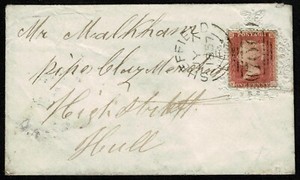 Mr Malkhouse
pipe Clay Merchant
High Street
Hull
SHEFFIELD
POSTAGE